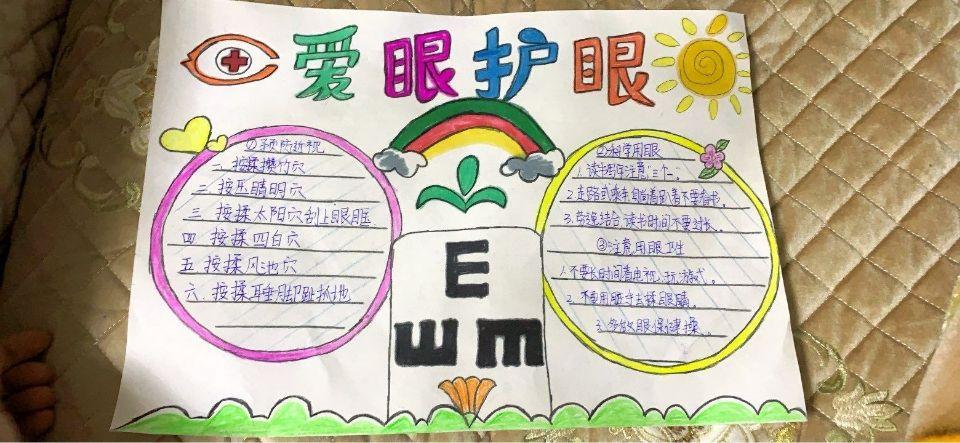 爱眼护眼
①预防近视
一 按揉攒竹穴
二 按压睛明穴
三 按揉太阳穴刮上眼眶
四 按揉四白穴
五 按揉风池穴
六 按揉耳垂脚趾抓地
②科学用眼
1.读书写字注意"三个一"。
2.走路或乘车
不要看书。
3.劳逸结合 读书时间不要过长。
③注意用眼卫生
1.不要长时间看电视、玩游戏。
2.不要用脏手去揉眼睛。
3.多做眼保健操。
E